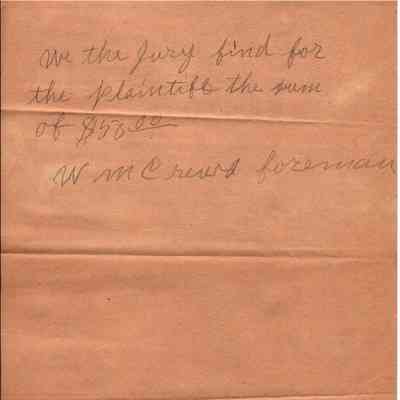 We the Jury find for
the plaintiff the sum
of $50.00
W M Crews foreman